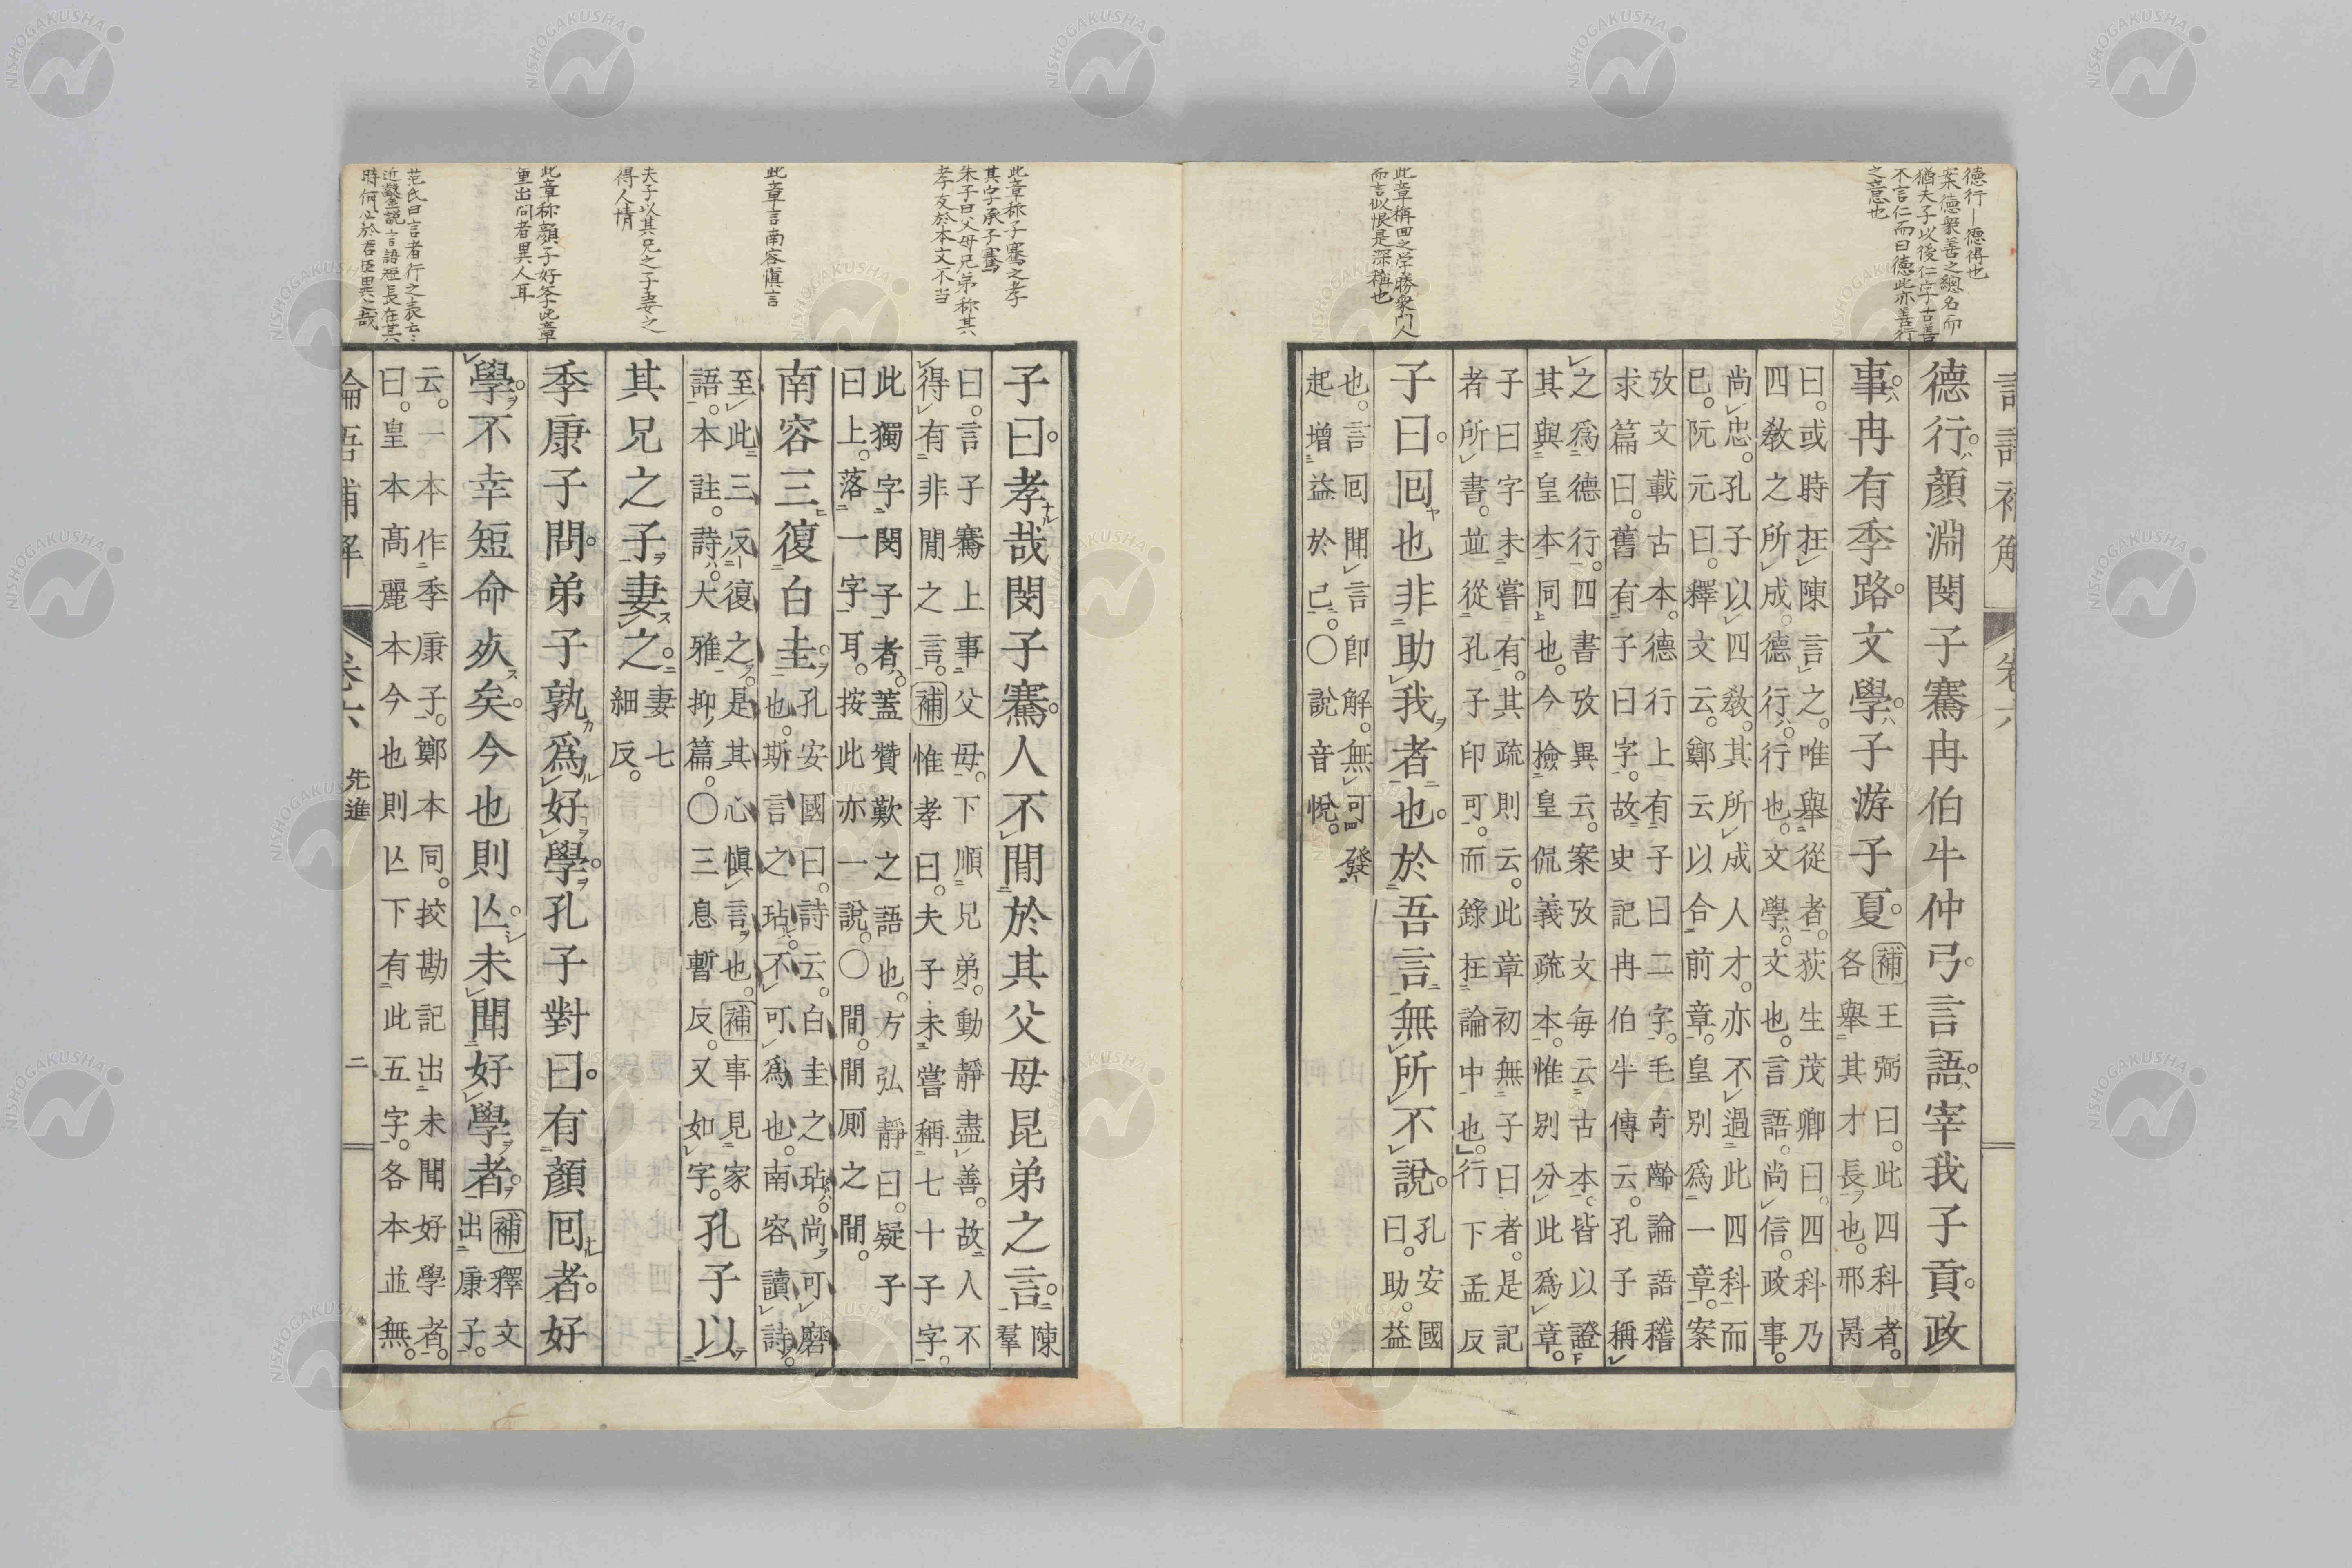 德行顏淵閔子騫冉伯牛仲弓言語宰我子貢政
事冉有季路文學子游子夏
補王弼曰此四科者
各舉其才長也邢昺
曰或時在陳言之唯舉從者荻生茂卿曰四科乃
四敎之所成德行行也文學文也言語尚信政事
尚忠孔子以四敎其所成人才亦不過此四科而
已阮元曰釋文云鄭云以合前章皇別爲一章案
攷文載古本德行上有子曰二字毛奇齡論語稽
求篇曰舊有子曰字故史記冉伯牛傳云孔子稱
之爲德行四書攷異云案攷文每云古本皆以證
其與皇本同也今撿皇侃義疏本惟別分此爲章
子曰字未嘗有其疏則云此章初無子曰者是記
者所書並從孔子印可而錄在論中也行下孟反
子曰回也非助我者也於吾言無所不說
孔安國
曰助益
也言回聞言即解無可發
起增益於己○說音悅
子曰孝哉閔子騫人不閒於其父母昆弟之言
陳
羣
曰言子騫上事父母下順兄弟動靜盡善故人不
得有非閒之言補惟孝曰夫子未嘗稱七十子字
此獨字閔子者蓋贊歎之語也方弘靜曰疑子
曰上落一字耳按此亦一說○閒閒厠之閒
南容三復白圭
孔安國曰詩云白圭之玷尚可磨
也斯言之玷不可爲也南容讀詩
至此三反復之是其心愼言也補事見家
語本註詩大雅抑篇○三息暫反又如字
孔子以
其兄之子妻之
妻七
細反
季康子問弟子孰爲好學孔子對曰有顏回者好
學不幸短命死矣今也則亾未聞好學者
補釋文
出康子
云一本作季康子鄭本同挍勘記出未聞好學者
曰皇本高麗本今也則亾下有此五字各本並無
卷六
先進
二
德行―德得也
案德衆善之總名而
猶夫子以後仁字古善
不言仁而曰徳此亦善行
之意也
此章稱回之学勝衆門人
而言似恨是深稱也
此章称子騫之孝
其字承子騫
朱子曰父母兄弟称其
孝友於本文不当
此章言南容愼言
夫子以其兄之子妻之
得人情
此章称顔子好学此章
重出問者異人耳
范氏曰言者行之表云〻
時何必於君臣異之哉
NISHOGAKUSHA